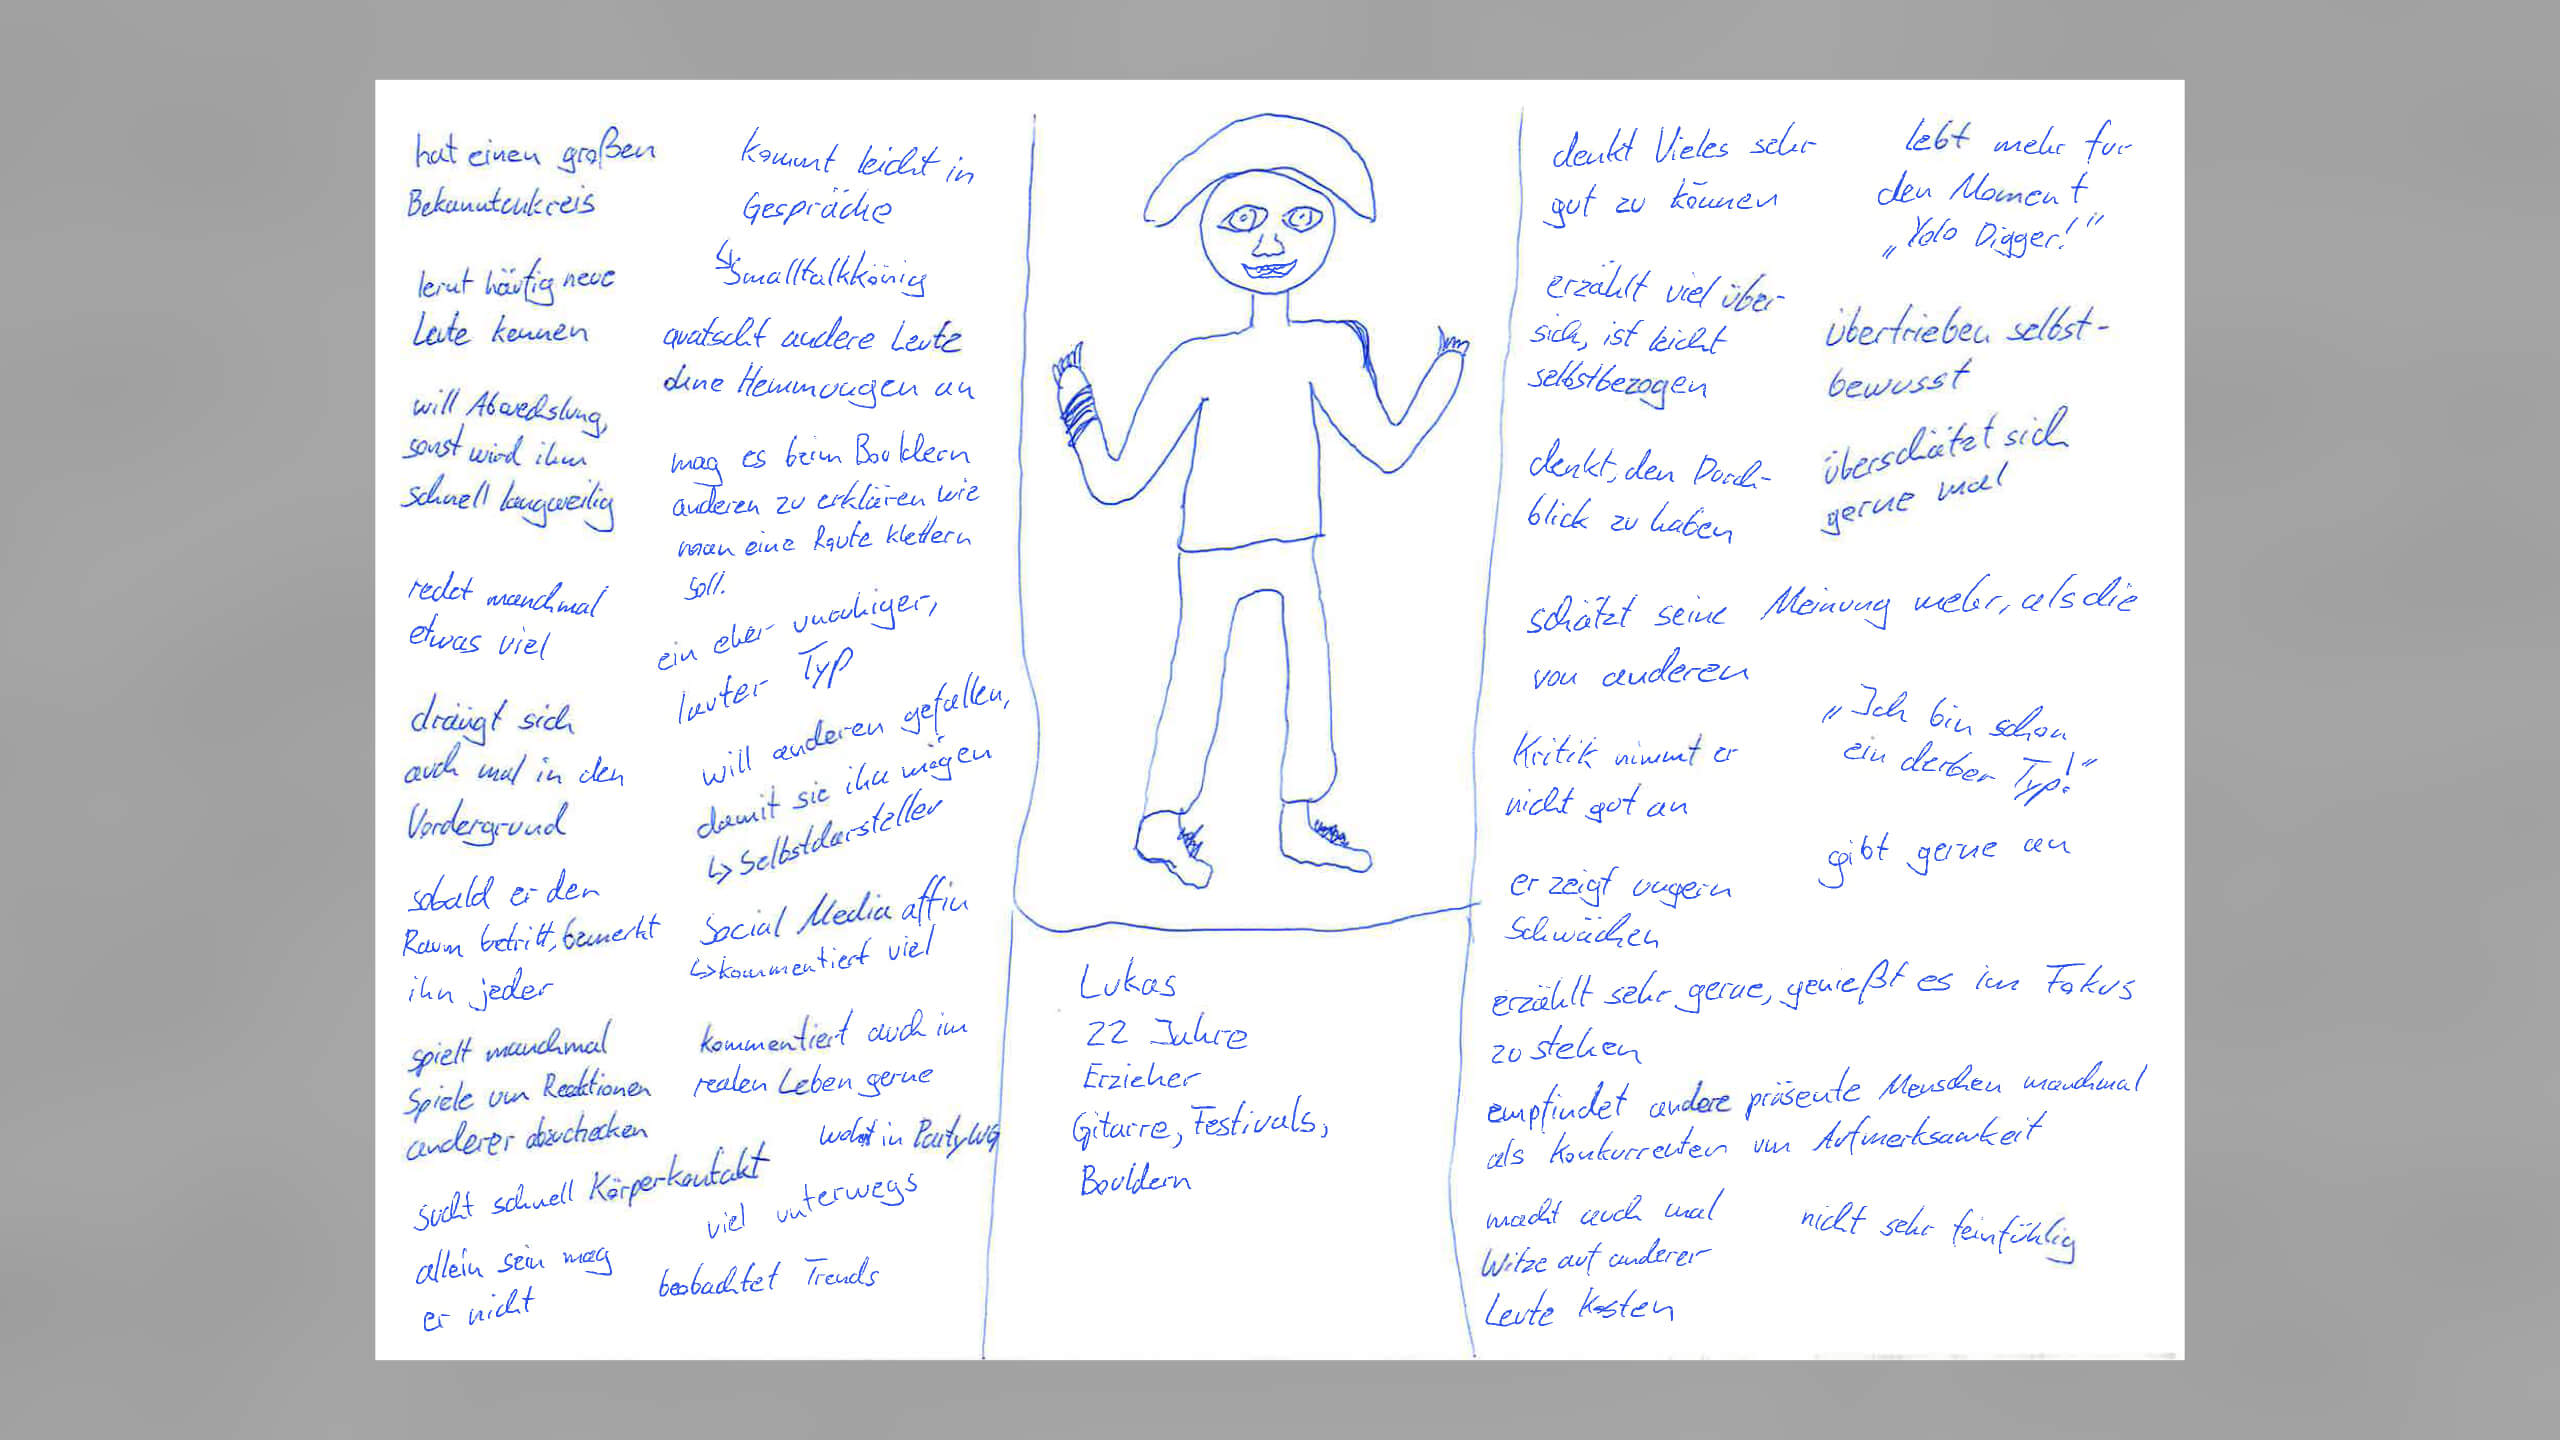 hat einen großen
Bekanntenkreis
lernt häufig neue
Leute kennen
will Abwechslung,
sonst wird ihm
schnell langweilig
redet manchmal
etwas viel
drängt sich
auch mal in den
Vordergrund
sobald er den
Raum betritt, bemerkt
ihn jeder
spielt manchmal
Spiele um Reaktionen
anderer abzuchecken
sucht schnell Körperkontakt
allein sein mag
er nicht
kommt leicht in
Gespräche
↳ Smalltalkkönig
quatscht andere Leute
ohne Hemmungen an
mag es beim Bouldern
anderen zu erklären wie
man eine Route klettern
soll.
ein eher unruhiger,
lauter Typ
will anderen gefallen,
damit sie ihn mögen
↳ Selbstdarsteller
Social Media affin
↳ kommentiert viel
kommentiert auch im
realen Leben gerne
wohnt in PartyWG
viel unterwegs
beobachtet Trends
Lukas
22 Jahre
Erzieher
Gitarre, Festivals,
Bouldern
denkt Vieles sehr
gut zu können
erzählt viel über
sich, ist leicht
selbstbezogen
denkt, den Durch-
blick zu haben
lebt mehr für
den Moment
„Yolo Digger!"
übertrieben selbst-
bewusst
überschätzt sich
gerne mal
schätzt seine Meinung mehr, als die
von anderen
Kritik nimmt er
nicht gut an
er zeigt ungern
Schwächen
„Ich bin schon
ein derber Typ!"
gibt gerne an
erzählt sehr gerne, genießt es im Fokus
zu stehen
empfindet andere präsente Menschen manchmal
als Konkurrenten um Aufmerksamkeit
macht auch mal
Witze auf anderer
Leute Kosten
nicht sehr feinfühlig